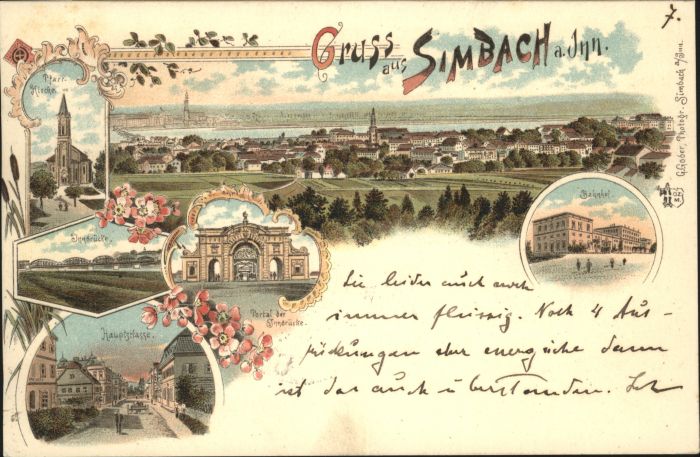 7.
Gruss
aus
SIMBACH a. Inn.
Pfarr-
Kirche.
Innbrücke.
Portal der
Innbrücke.
Hauptstrasse.
Bahnhof.
G. Gober, Photogr. Simbach a/Inn.
Sie leider auch noch
immer fleissig. Noch 4 Aus-
rückungen aber energische dann
ist das auch überstanden. Ich